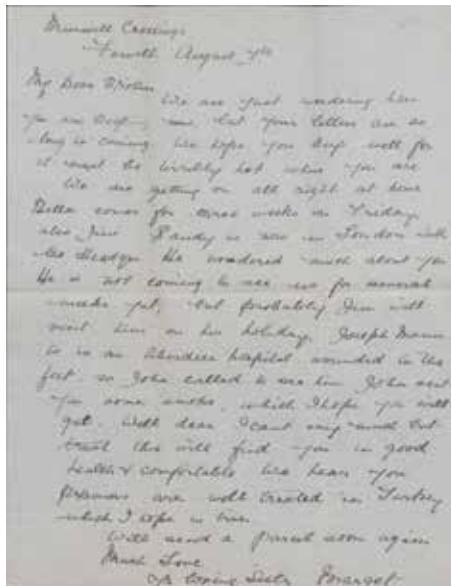 Crossings
August 7th
My Dear Brother
We are just wondering how
you are now, but your letters are so
long in coming. We hope you keep well for
it must be terribly hot where you are
We are getting on all right at home
comes for three weeks on Friday
also Jim. Sandy is now in London with
He wondered much about you
He is not coming to see us for several
weeks yet, but probably Jim will
visit him on his holiday. Joseph
is in an Aberdeen hospital wounded in the
foot, so John called to see him. John sent
you some which I hope you will
get. Well dear I cant say much but
trust this will find you in good
health & comfortable. We hear you
prisoners are well treated in Turkey
which I hope is true
Will send a parcel soon again
Much Love
loving Sister Margot